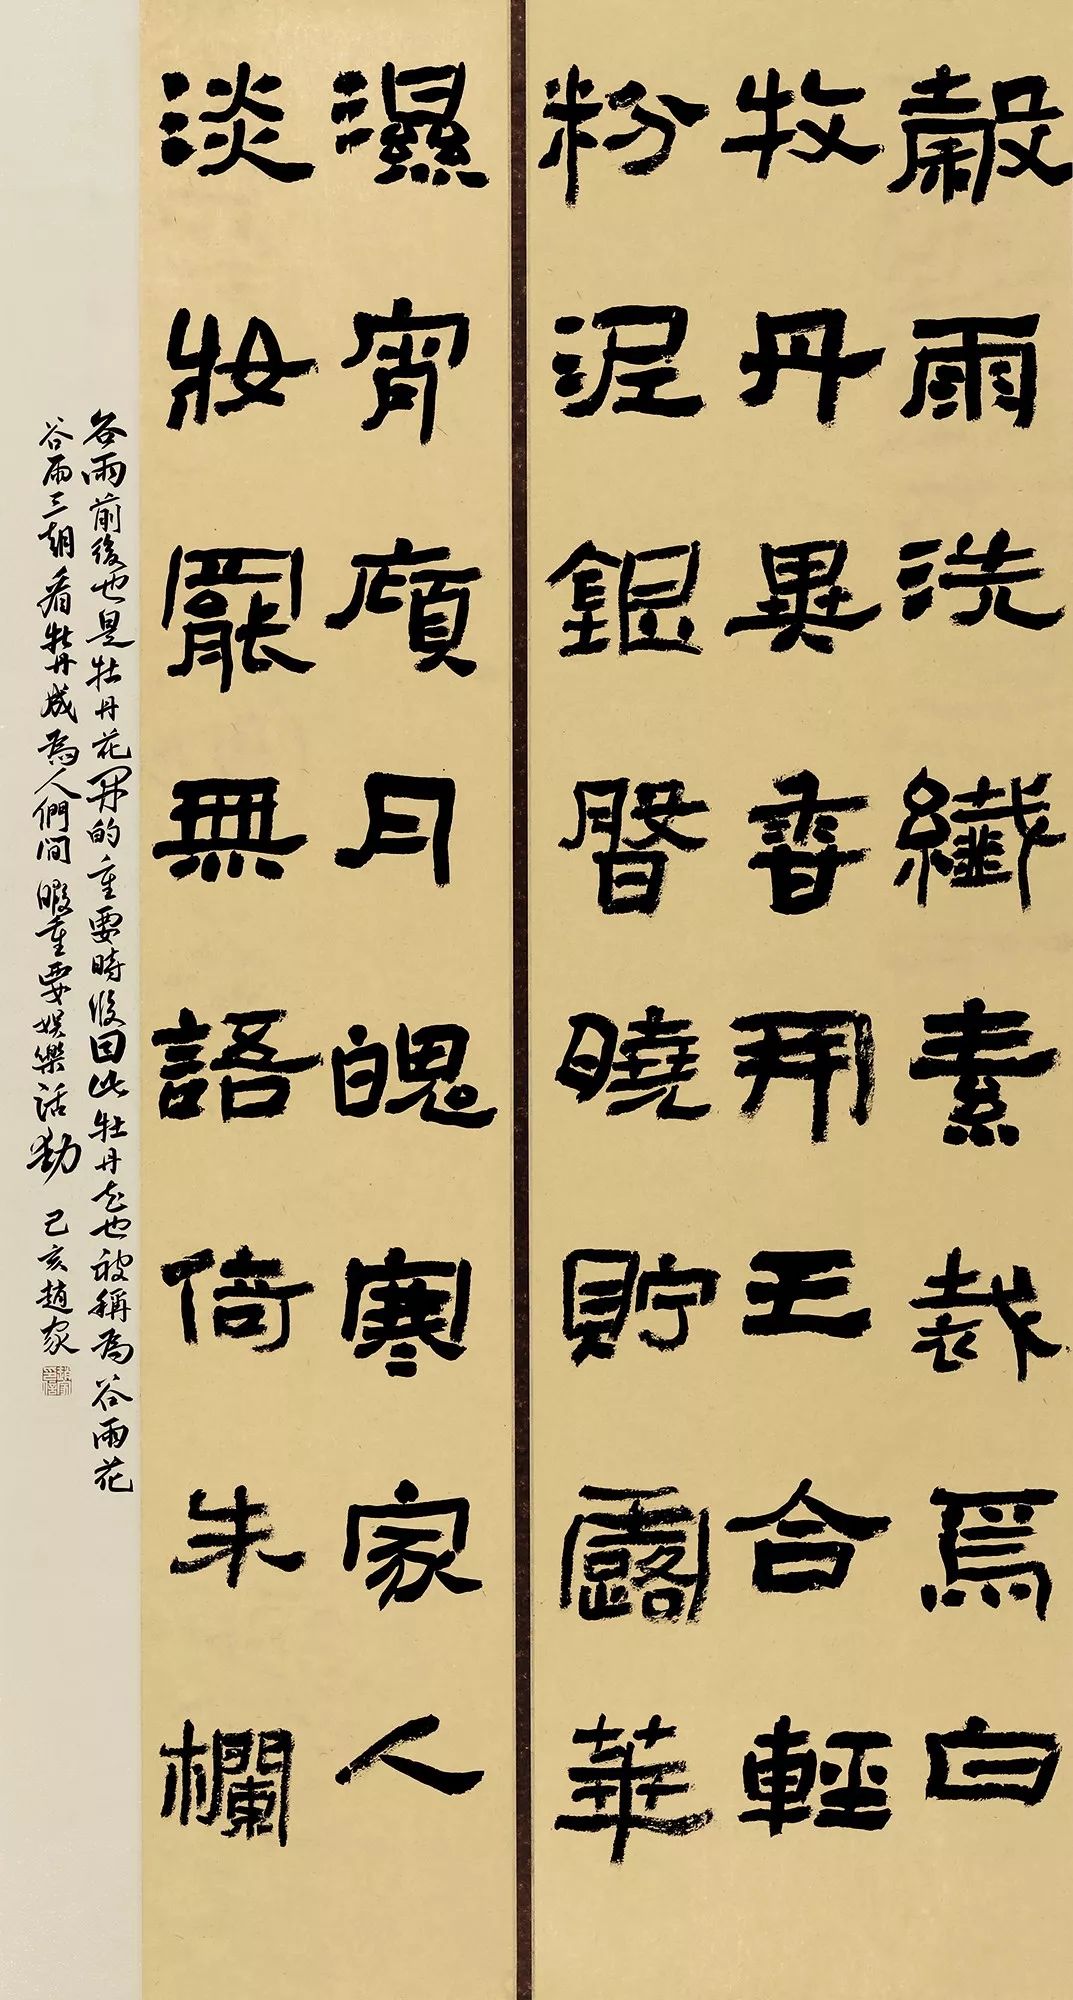 穀雨洗纖素裁爲白
牧丹異香開玉合輕
粉泥銀盤曉貯露華
濕宵傾月魄寒家人
淡妝罷無語倚朱欄
谷雨前後也是牡丹花開的重要時段因此牡丹花也被稱為谷雨花
谷雨三朝看牡丹成為人們閒暇重要娛樂活動 己亥趙家